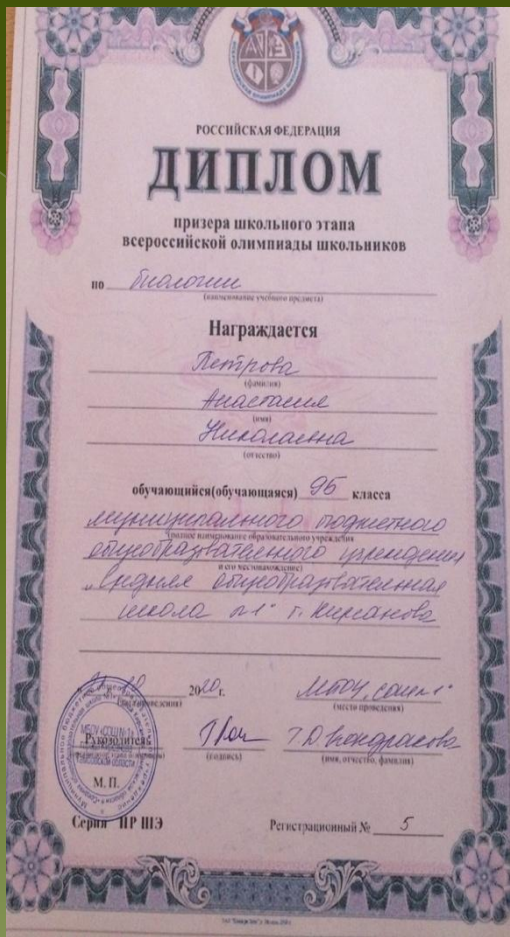 РОССИЙСКАЯ ФЕДЕРАЦИЯ
ДИПЛОМ
призера школьного этапа
всероссийской олимпиады школьников
по биологии
(наименование учебного предмета)
Награждается
Петрова
(фамилия)
Анастасия
(имя)
Николаевна
(отчество)
обучающийся(обучающаяся) 9б класса
муниципального бюджетного
(полное наименование образовательного учреждения
общеобразовательного учреждения
и его местонахождение)
"Средняя общеобразовательная
школа №1" г. Кирсанова
10 2020 г. МБОУ "СОШ №1"
(дата проведения) (место проведения)
Руководитель
(подпись) (имя, отчество, фамилия)
МБОУ «СОШ №1»
М. П.
Серия ПР ШЭ Регистрационный № 5